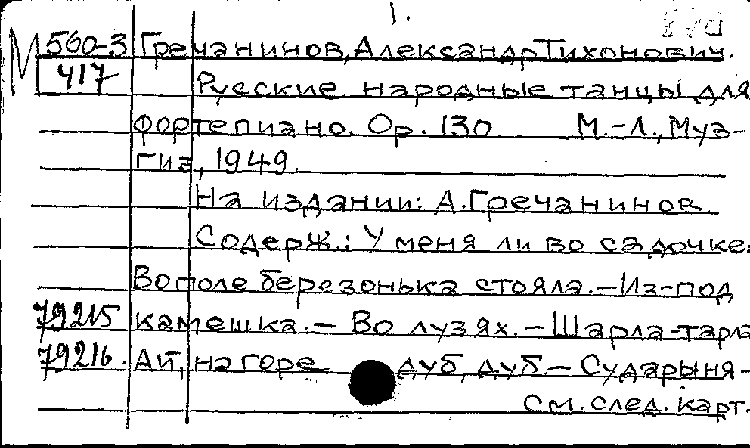 1.
М 560-3 Гречанинов, Александр Тихонович.
417 Русские народные танцы для
фортепиано. Op. 130 М.-Л., Муз-
гиз, 1949.
На издании: А. Гречанинов
Содерж.: У меня ли во садочке.
Во поле березонька стояла.-Из-под
79215 камешка.- Во лузях.- Шарла-тарла
79216. Ай, на горе дуб, дуб.- Сударыня-
См. след. карт.